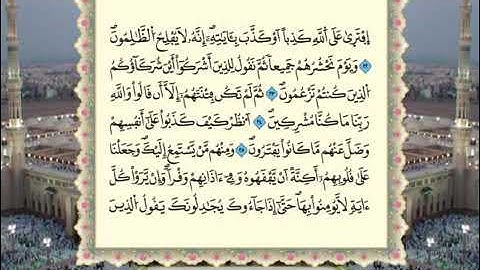 اِفْتَرَىٰ عَلَى اَللَّهِ كَذِباً اَوْ كَذَّبَ بِـَٔايَٰتِهِۦٓ إِنَّهُۥ لَا يُفْلِحُ اُلظَّٰلِمُونَۖ
٢٢ وَيَوْمَ نَحْشُرُهُمْ جَمِيعاً ثُمَّ نَقُولُ لِلذِينَ أَشْرَكُوٓاْ أَيْنَ شُرَكَآؤُكُمُ
اُلذِينَ كُنتُمْ تَزْعُمُونَۖ ٢٣ ثُمَّ لَمْ تَكُن فِتْنَتَهُمُۥٓ إِلَّآ أَن قَالُواْ وَاللَّهِ
رَبِّنَا مَا كُنَّا مُشْرِكِينَۖ ٢٤ اَنظُرْ كَيْفَ كَذَبُواْ عَلَىٰٓ أَنفُسِهِمْ
وَضَلَّ عَنْهُم مَّا كَانُواْ يَفْتَرُونَۖ ٢٥ وَمِنْهُم مَّنْ يَّسْتَمِعُ إِلَيْكَۖ وَجَعَلْنَا
عَلَىٰ قُلُوبِهِمُۥٓ أَكِنَّةً أَنْ يَّفْقَهُوهُ وَفِےٓ ءَاذَانِهِمْ وَقْراًۖ وَإِنْ يَّرَوْاْ كُلَّ
ءَايَةٍ لَّا يُؤْمِنُواْ بِهَاۖ حَتَّىٰٓ إِذَا جَآءُوكَ يُجَٰدِلُونَكَ يَقُولُ اُلذِينَ